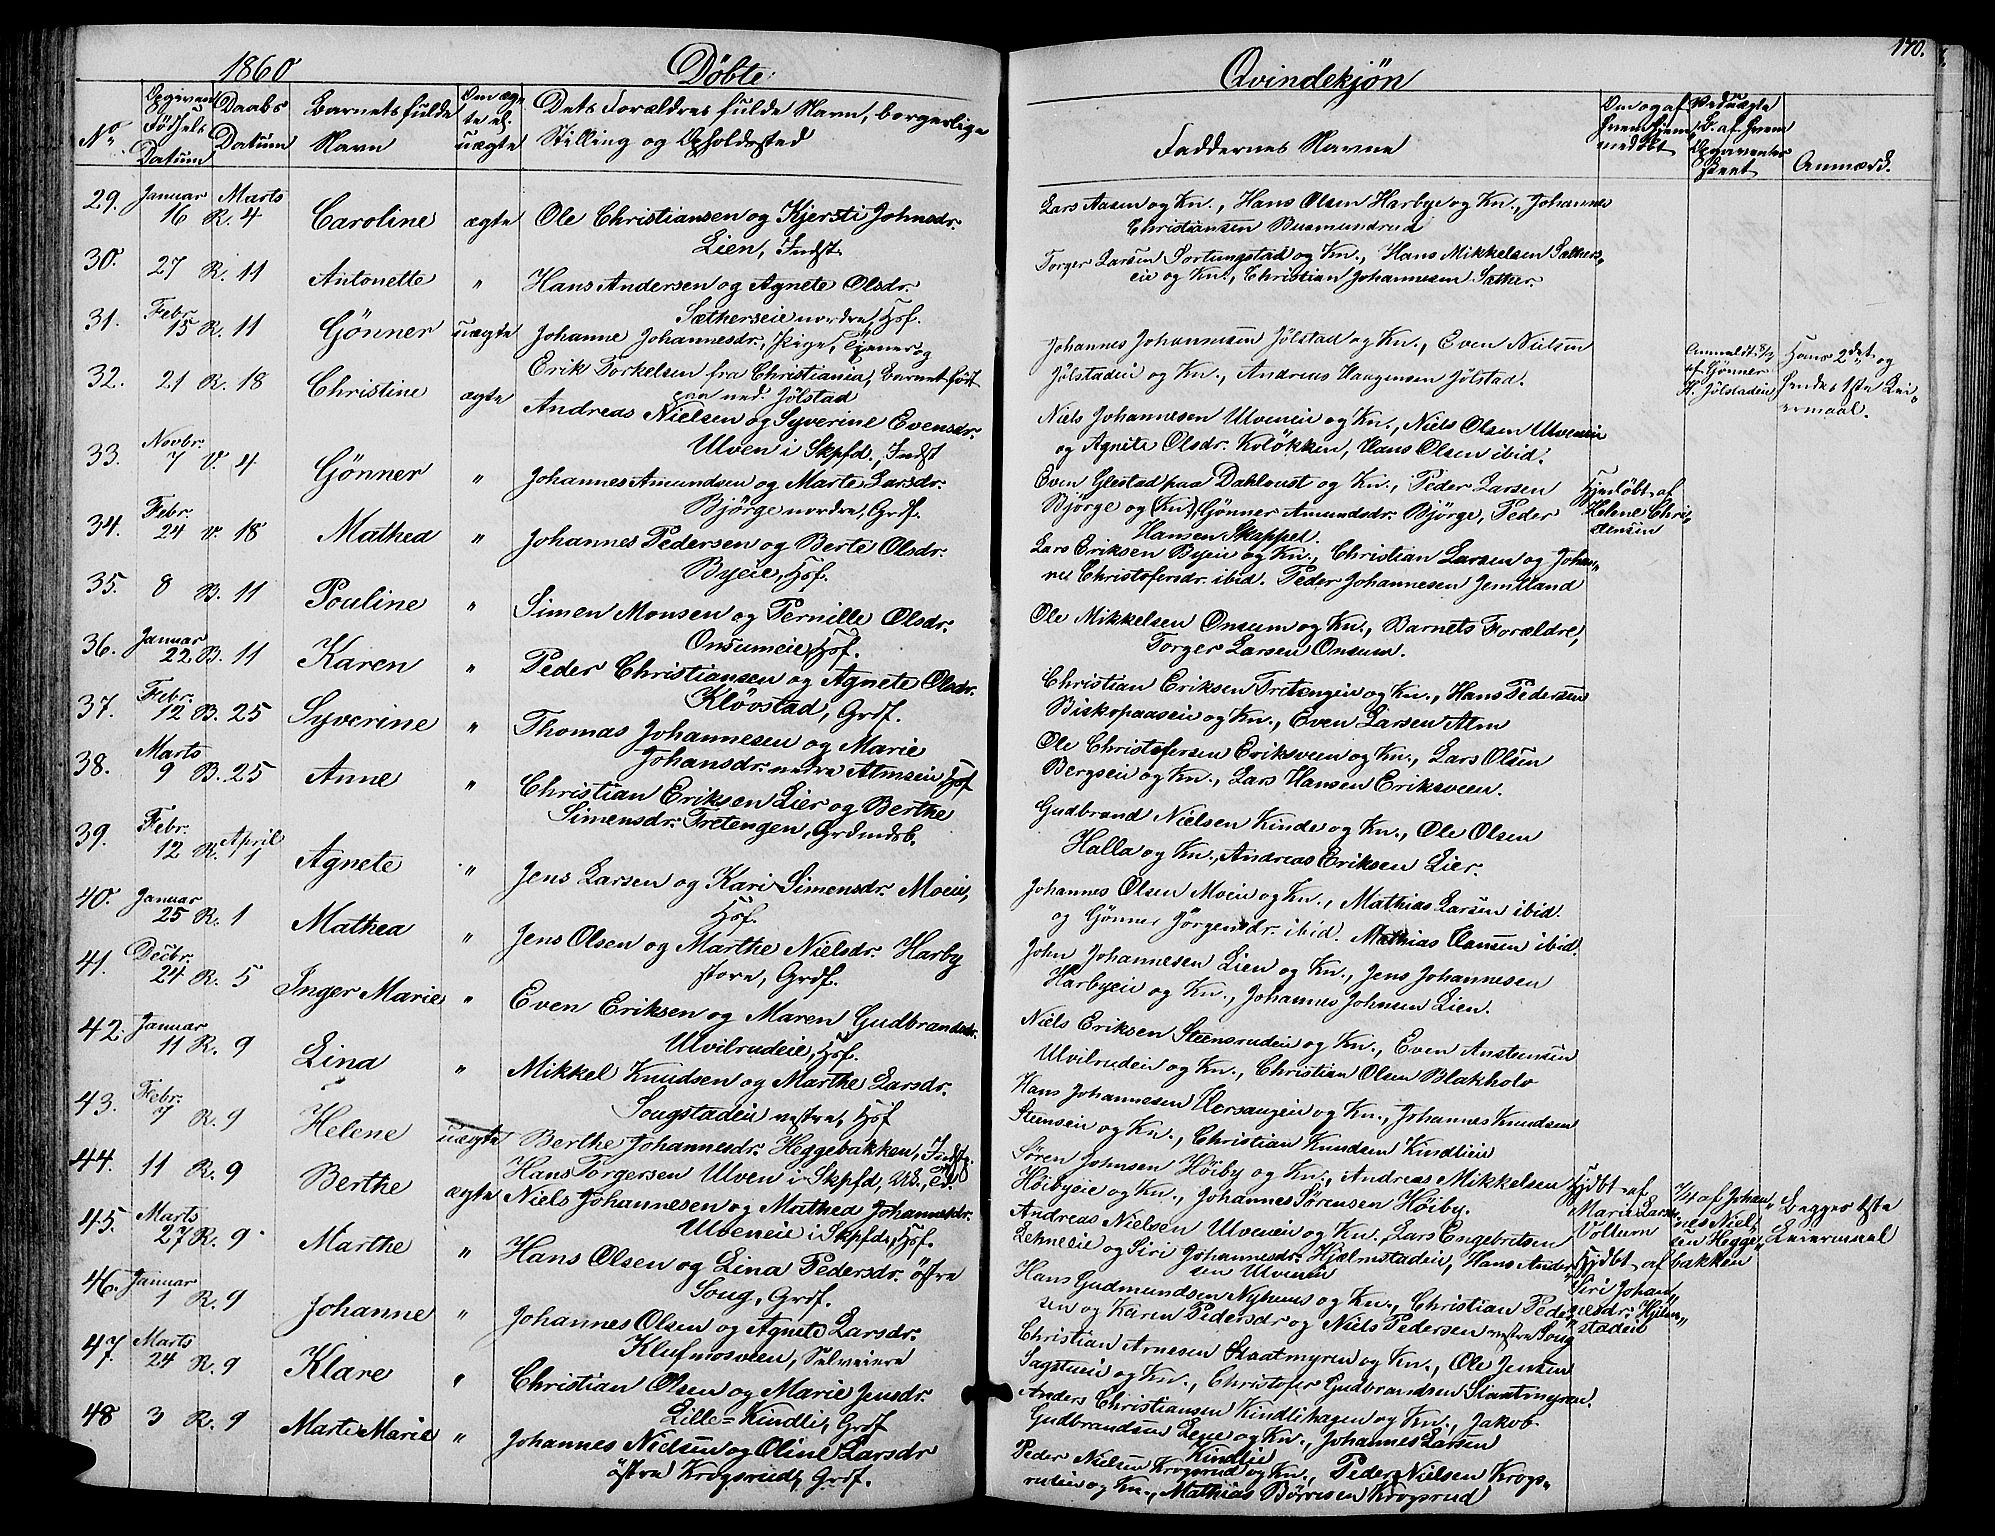 1860
Döbte
Qvindekjøn
170.
No
Opgiven Födsels Datum
Daabs Datum
Barnets fulde Navn
Om ægte el. uægte
Dets Forældres fulde Navn, borgerlige
Stilling og Opholdssted
Faddernes Navne
Om og af hvem hjemmedöbt
Anmærk.
29. Januar 16 Marts R. 4 Caroline ægte Ole Christiansen og Kjersti Johnsdr.
Lien, Indst.
Lars Aasen og Kn., Hans Olsen Harbye og Kn., Johannes
Christiansen Busmundrud
30. 27 R. 11 Antonette " Hans Andersen og Agnete Olsdr.
Sætherseie nordre, Hsf.
Torger Larsen Fortungstad og Kn., Hans Mikkelsen Sæthers-
eie og Kn., Christian Johannesen Sæther.
31. Febr. 15 R. 11 Gönner uægte Johanne Johannesdr., Pige, Tjener og
Erik Torkelsen fra Christiania, Barnet født
paa ned. Jölstad
Johannes Johannesen Jölstad og Kn., Even Nielsen
Jölstadeie og Kn., Andreas Haagensen Jölstad.
Anmeldt 8/3 af Gönner H. Jölstadeie
Hans 2det og
hendes 1ste Lei-
ermaal.
32. 21 R. 18 Christine ægte Andreas Nielsen og Syverine Evensdr.
Ulven i Skpfd., Indst
Niels Johannesen Ulveneie og Kn., Niels Olsen Ulveneie
og Agnete Olsdr. Kolökken, Hans Olsen ibid.
33. Novbr. 7 V. 4 Gönner " Johannes Amundsen og Marte Larsdr.
Bjørge nordre, Grdf.
Even Glestad paa Dahloust og Kn., Peder Larsen
Bjørge og Kn., Gönner Amundsdr. Bjørge, Peder
Hansen Skappel.
Hjemdöbt af
Helene Chri-
stensen
34. Febr. 24 V. 18 Mathea " Johannes Pedersen og Berte Olsdr.
Byeie, Hsf.
Lars Eriksen Byeie og Kn., Christian Larsen og Johan-
ne Christofersdr. ibid. Peder Johannesen Jemtland
35. 8 B. 11 Pouline " Simen Monsen og Pernille Olsdr.
Onsumeie, Hsf.
Ole Mikkelsen Onsum og Kn., Barnets Forældre,
Torger Larsen Onsum.
36. Januar 22 B. 11 Karen " Peder Christiansen og Agnete Olsdr.
Klövstad, Grdf.
Christian Eriksen Tretengeie og Kn., Hans Pedersen
Biskopaaseie og Kn., Even Larsen Alm
37. Febr. 12 B. 25 Syverine " Thomas Johannesen og Marie
Johansdr. nedre Almseie, Hsf
Ole Christofersen Eriksveen og Kn., Lars Olsen
Bergseie og Kn., Lars Hansen Eriksveen.
38. Marts 9 B. 25 Anne " Christian Eriksen Lier og Berthe
Simensdr. Tretengen, Grdmdsb.
Gudbrand Nielsen Kinde og Kn., Ole Olsen
Halla og Kn., Andreas Eriksen Lier.
39. Febr. 12 April R. 1 Agnete " Jens Larsen og Kari Simensdr. Moeie,
Hsf.
Johannes Olsen Moeie og Kn., Mathias Larsen ibid.
og Gönner Jörgensdr. ibid. Mathias Hansen ibid.
40. Januar 25 R. 1 Mathea " Jens Olsen og Marthe Nielsdr. Harby
store, Grdf.
John Johannesen Lien og Kn., Jens Johannesen
Harbyeie og Kn., Johannes Johnsen Lien.
41. Decbr. 24 R. 5 Inger Marie " Even Eriksen og Maren Gudbrandsdr.
Ulvilrudeie, Hsf.
Niels Eriksen Steensrudeie og Kn., Even Anstensen
Ulvilrudeie og Kn., Christian Olsen Blakholo
42. Januar 11 R. 9 Lina " Mikkel Knudsen og Marthe Larsdr.
Sougstadeie vestre, Hsf
Hans Johannesen Horsaugeie og Kn., Johannes Knudsen
Steenseie og Kn., Christian Knudsen Kindlieie
43. Febr. 7 R. 9 Helene uægte Berthe Johannesdr. Heggebakken, Indst.
Hans Torgersen Ulven i Skpfd,
Søren Johnsen Höiby og Kn., Andreas Mikkelsen
Höibyeie og Kn., Johannes Sørensen Höiby.
Hjdbt af
Marie Larsd.
Voldum
1/4 af Johan-
nes Niel-
sen Hegge-
bakken
Begges 1ste
Leiermaal
44. 11 R. 9 Berthe ægte Niels Johannesen og Mathea Johannesdr.
Ulveneie i Skpfd., Hsf.
Andreas Nielsen Ulveneie og Kn., Lars Engebretsen
Lehneeie og Siri Johannesdr. Hjelmstadeie, Hans Ander-
sen Ulveneie
Hjdbt af
Siri Johan-
nesdr. Hjelm-
stadeie
45. Marts 27 R. 9 Marthe " Hans Olsen og Lina Pedersdr. östre
Soug, Grdf.
Hans Gudmundsen Nyhuus og Kn., Christian Peder-
sen og Karen Pedersdr og Niels Pedersen vestre Soug
46. Januar 1 R. 9 Johanne " Johannes Olsen og Agnete Larsdr.
Klufmosveen, Selveiere
Christian Arnesen Skaatmyren og Kn., Ole Jensen
Sagstueie og Kn., Christofer Gudbrandsen Slaatmyren.
47. Marts 24 R. 9 Klare " Christian Olsen og Marie Jensdr.
Lille-Kindli, Grdf
Anders Christiansen Kindlihagen og Kn., Jakob
Gudbrandsen Lene og Kn., Johannes Larsen
Kindlie
48 3 R. 9 Marte Marie " Johannes Nielsen og Oline Larsdr
östre Krogsrud, Grdf.
Peder Nielsen Krogsrud og Kn., Peder Nielsen Krogs-
rudeie og Kn., Mathias Börresen Krogsrud